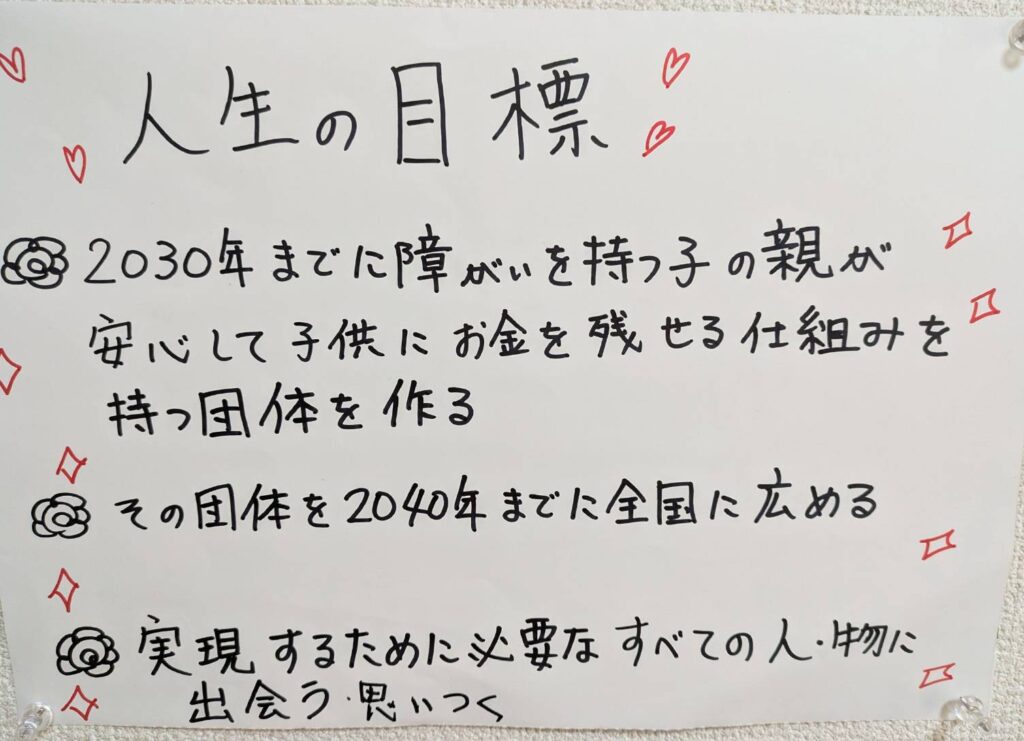 人生の目標
2030年までに障がいを持つ子の親が
安心して子供にお金を残せる仕組みを
持つ団体を作る
その団体を2040年までに全国に広める
実現するために必要なすべての人・物に
出会う・思いつく